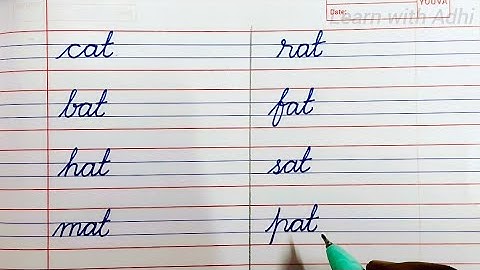 YOUVA
Learn with Adhi
Date:
cat rat
bat fat
hat sat
mat pat